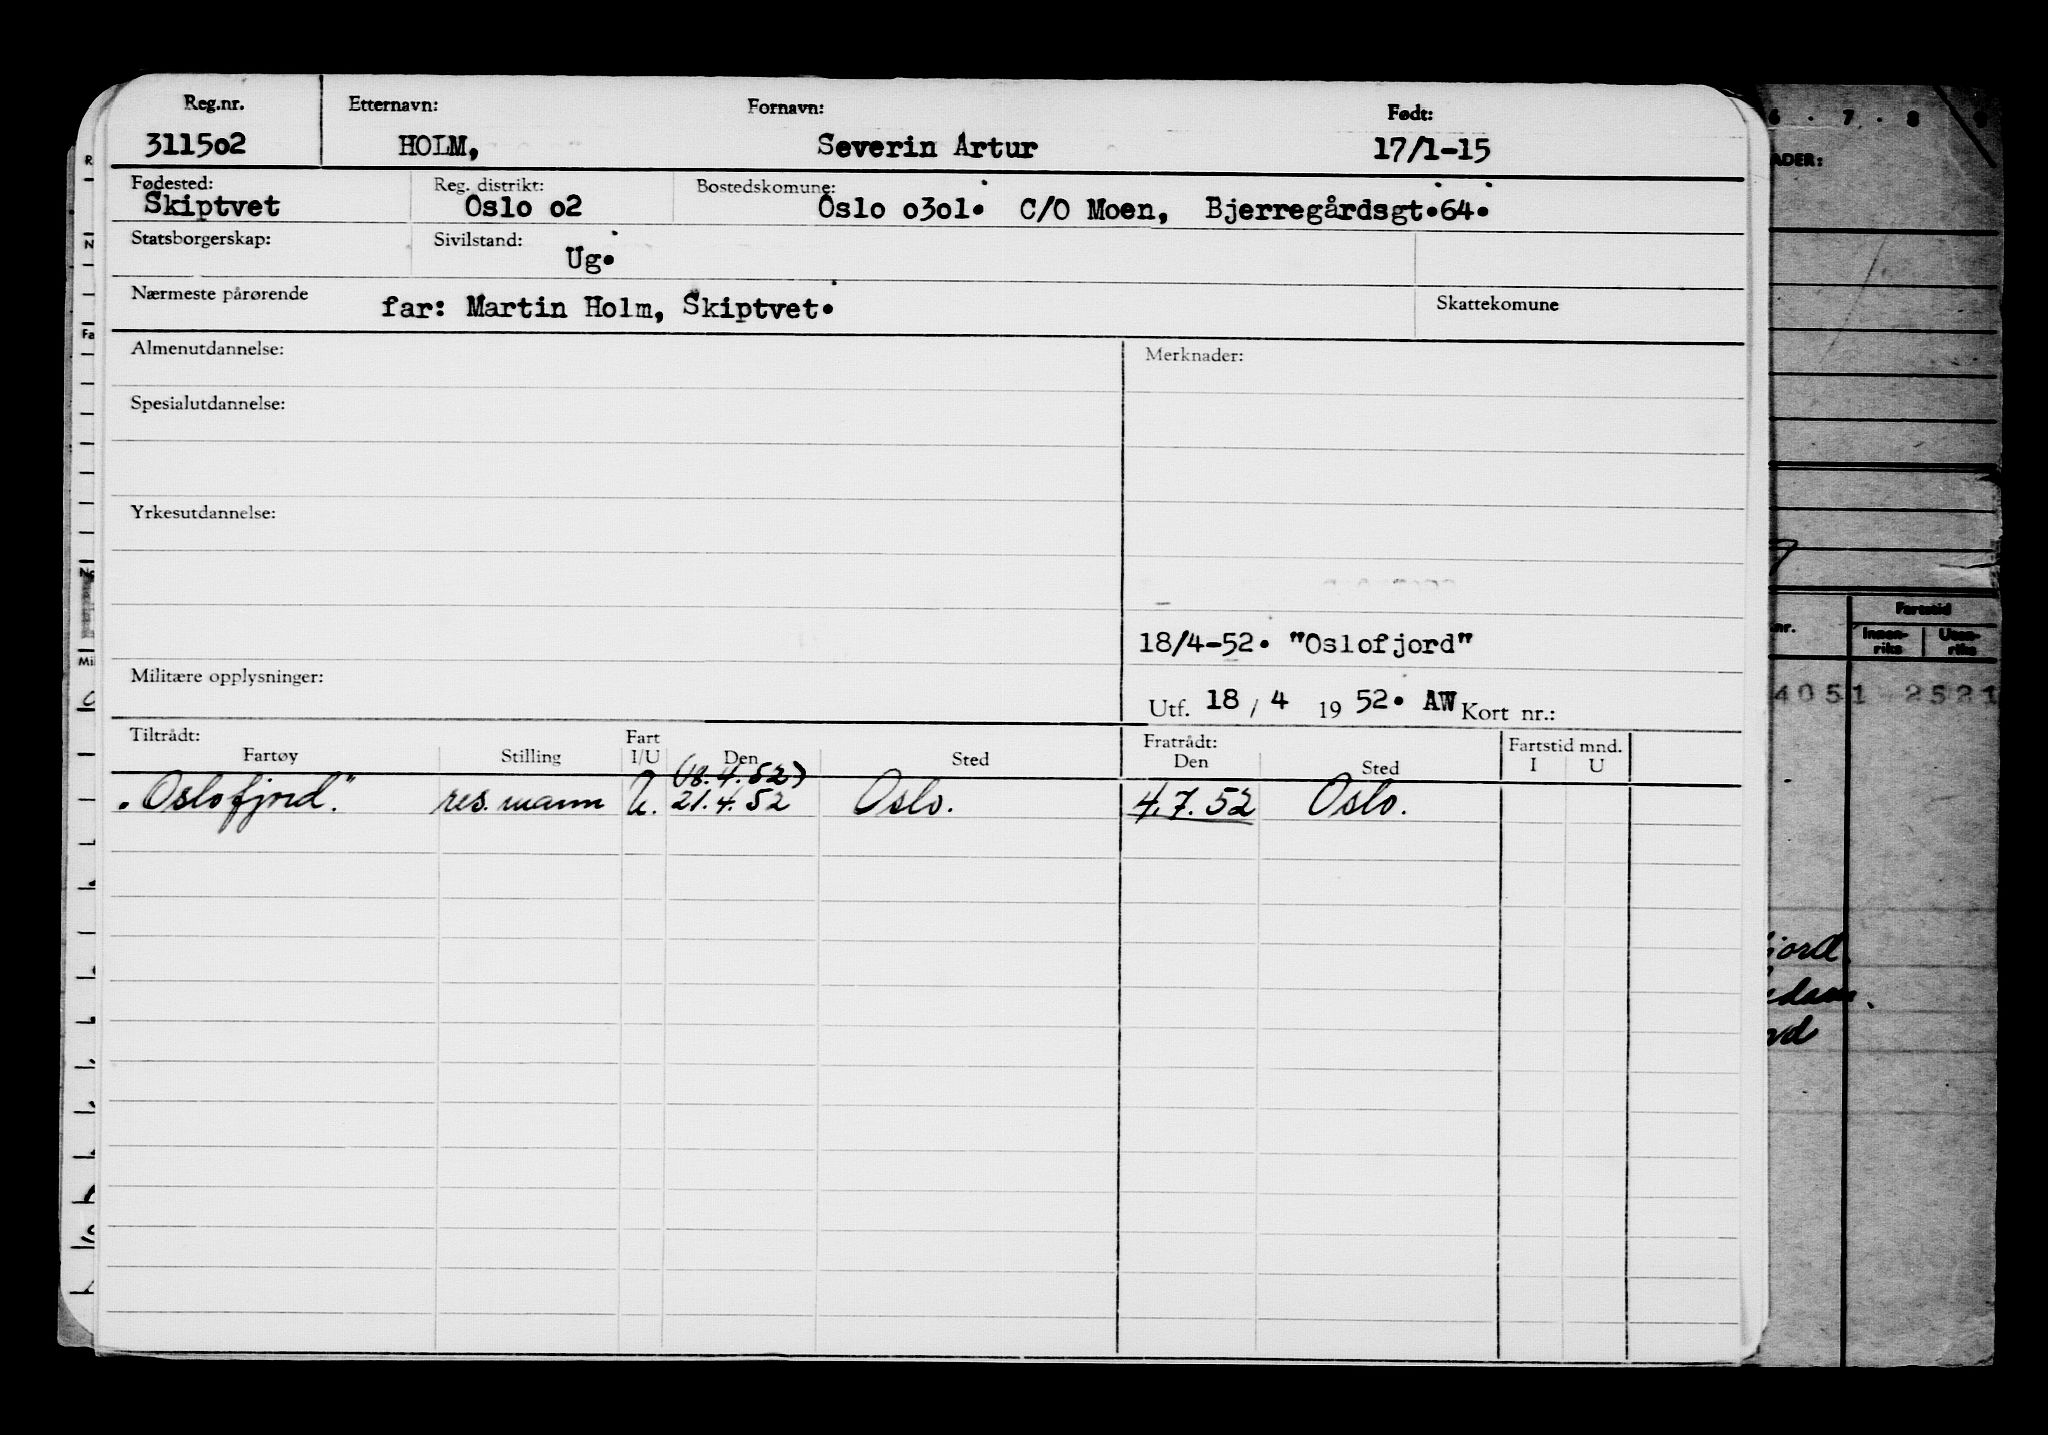 Reg.nr. Etternavn: Fornavn: Født:
3115o2 HOLM, Severin Artur 17/1-15
Fødested: Reg. distrikt: Bostedskomune:
Skiptvet Oslo o2 Oslo o3o1. C/O Moen, Bjerregårdsgt.64.
Statsborgerskap: Sivilstand:
Ug.
Nærmeste pårørende far: Martin Holm, Skiptvet. Skattekomune
Almenutdannelse: Merknader:
Spesialutdannelse:
Yrkesutdannelse:
18/4-52. "Oslofjord"
Militære opplysninger:
Utf. 18 / 4 19 52. AW Kort nr.:
Tiltrådt: Fart Fratrådt: Fartstid mnd.
Fartøy Stilling I/U Den Sted Den Sted I U
(18.4.52)
"Oslofjord." res. mann U. 21.4.52 Oslo. 4.7.52 Oslo.
6 . 7 . 8 9
ADER:
nr. Fartstid
Innen-riks Uten-riks
4051 2521
jord.